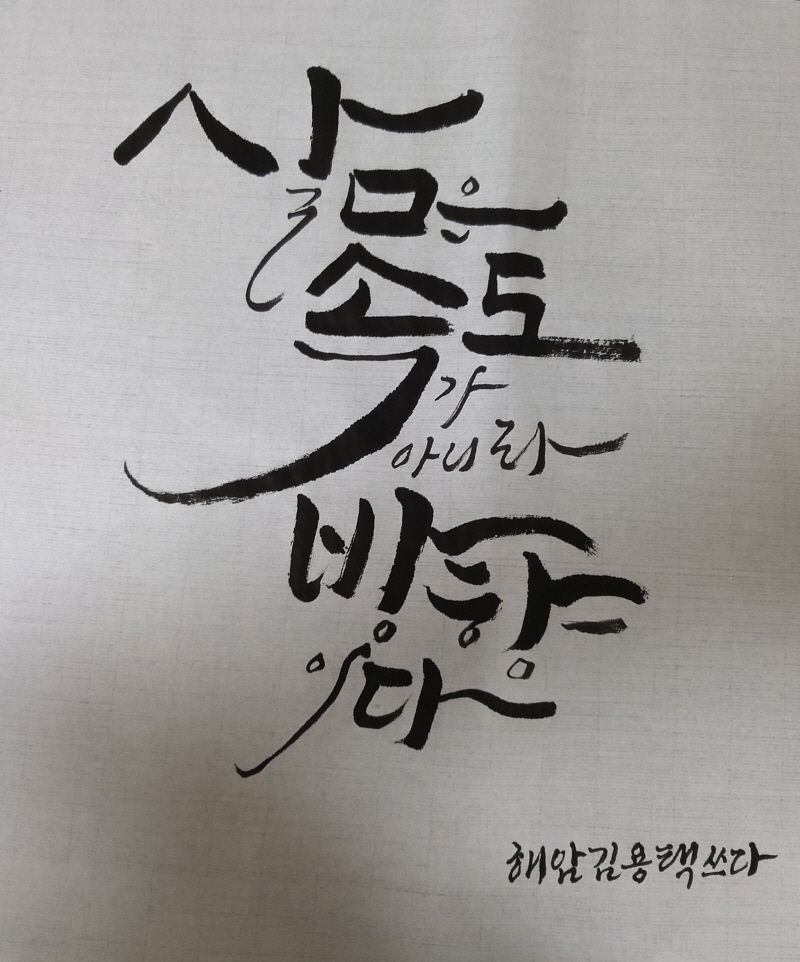 삶은
속도
가
아니라
방향
이다
해암김용택쓰다